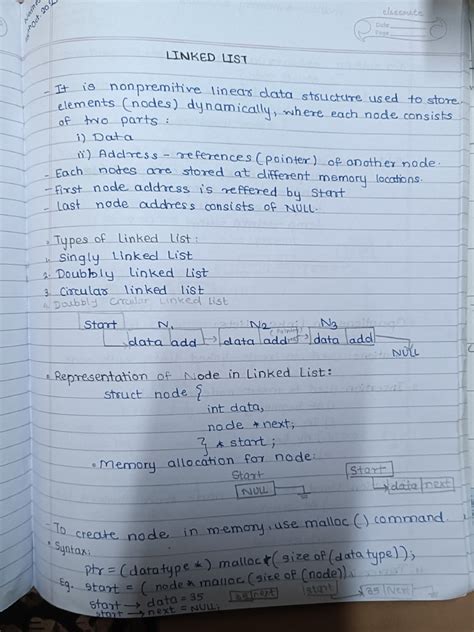 classmate
Date
Page
LINKED LIST
- It is nonpremitive linear data structure used to store
elements (nodes) dynamically, where each node consists
of two parts:
i) Data
ii) Address - references (pointer) of another node.
- Each notes are stored at different memory locations.
- First node address is reffered by Start
- last node address consists of NULL.
• Types of linked list:
1. Singly Linked List
2. Doubbly linked list
3. Circular linked list
4. Doubbly Circular Linked list
Start N1 N2 N3
data add data add data add
NULL
• Representation of Node in Linked List:
struct node {
int data,
node *next;
} * start ;
• Memory allocation for node:
Start Start
NULL data next
- To create node in memory, use malloc ( ) command.
• Syntax:
ptr = (datatype *) malloc * (size of (data type));
Eg. start = ( node * malloc (size of (node))
start → data = 35 35 Next start 35 Next
start → next = NULL;